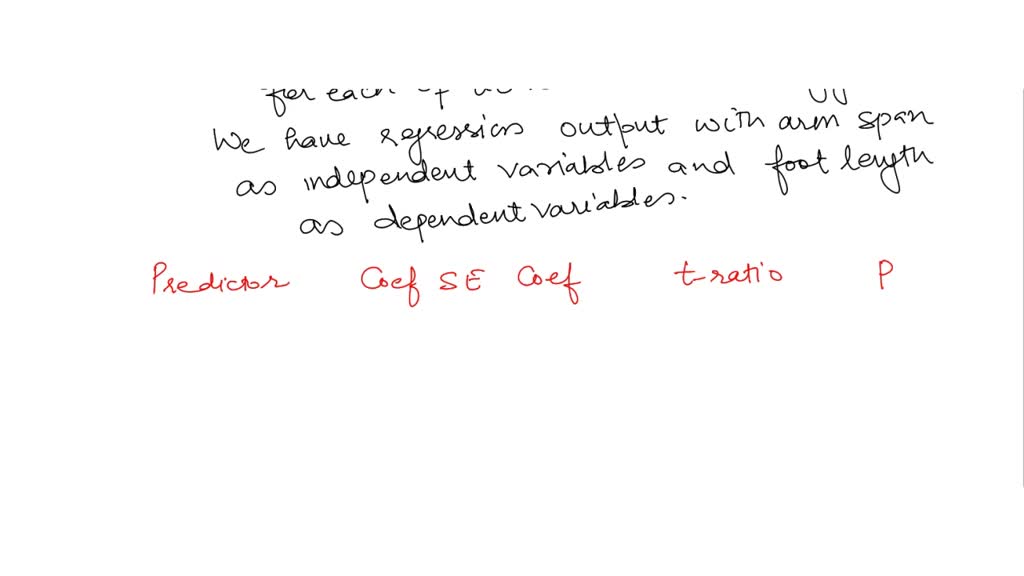 for each of
We have regression output with arm span
as independent variables and foot length
as dependent variables.
Predictor Coef SE Coef t-ratio P